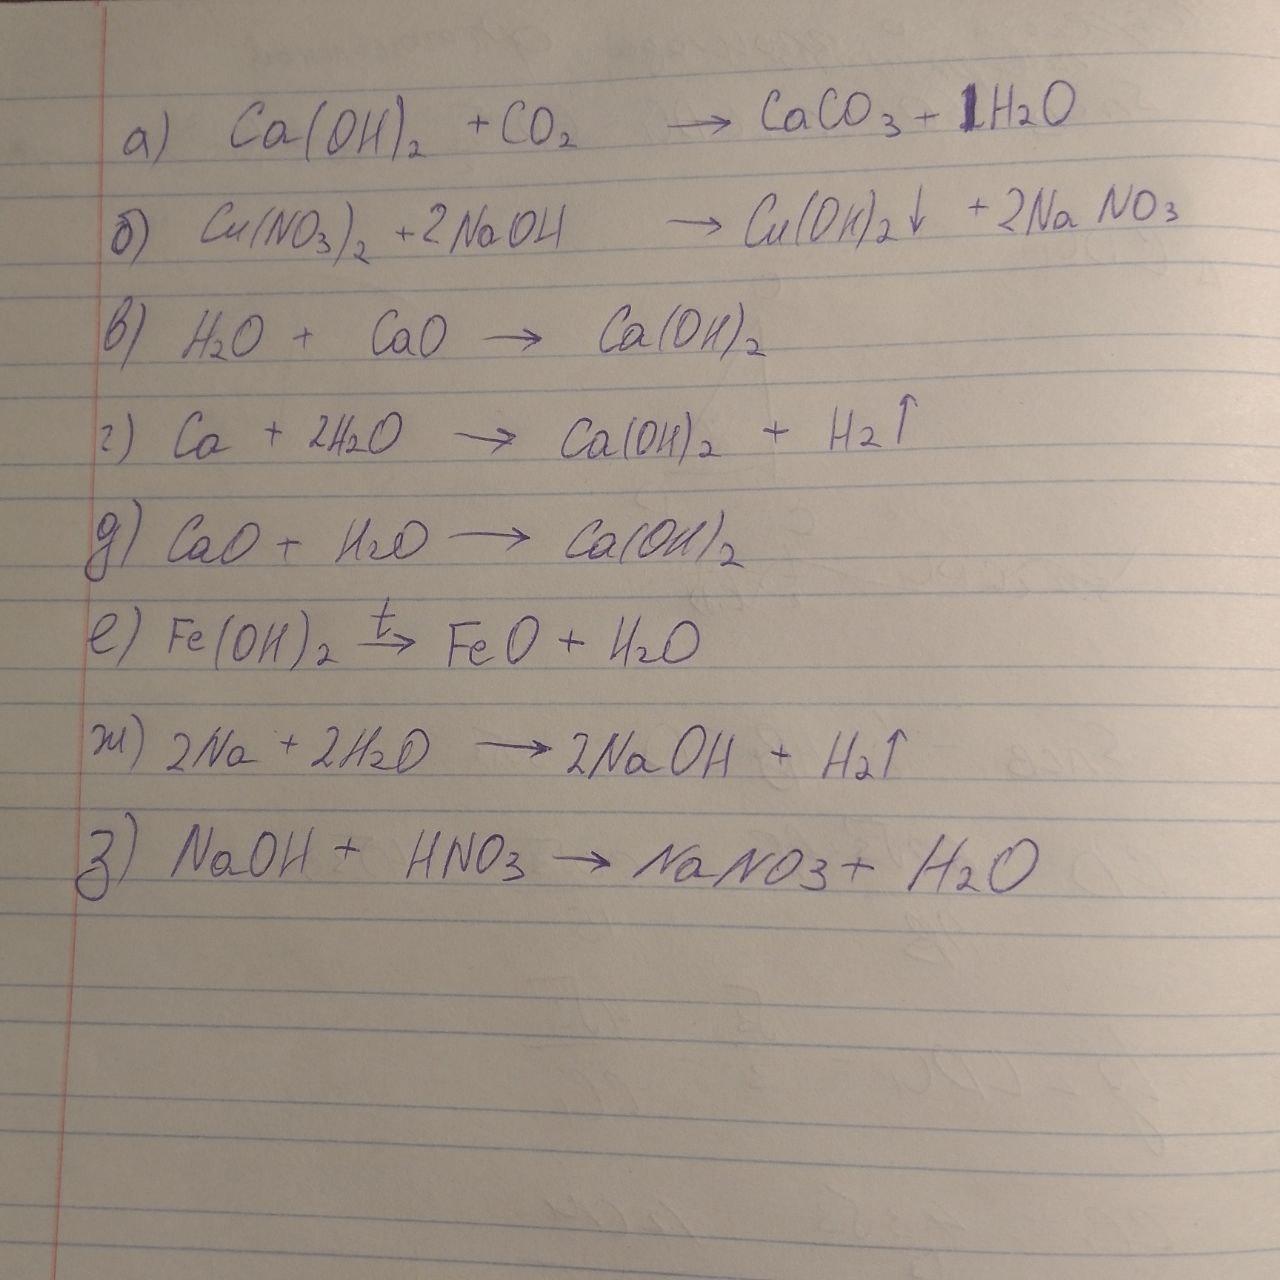 а) Ca(OH)₂ + CO₂ → CaCO₃ + 1H₂O
б) Cu(NO₃)₂ + 2NaOH → Cu(OH)₂↓ + 2NaNO₃
в) H₂O + CaO → Ca(OH)₂
г) Ca + 2H₂O → Ca(OH)₂ + H₂↑
д) CaO + H₂O → Ca(OH)₂
е) Fe(OH)₂ t→ FeO + H₂O
ж) 2Na + 2H₂O → 2NaOH + H₂↑
з) NaOH + HNO₃ → NaNO₃ + H₂O